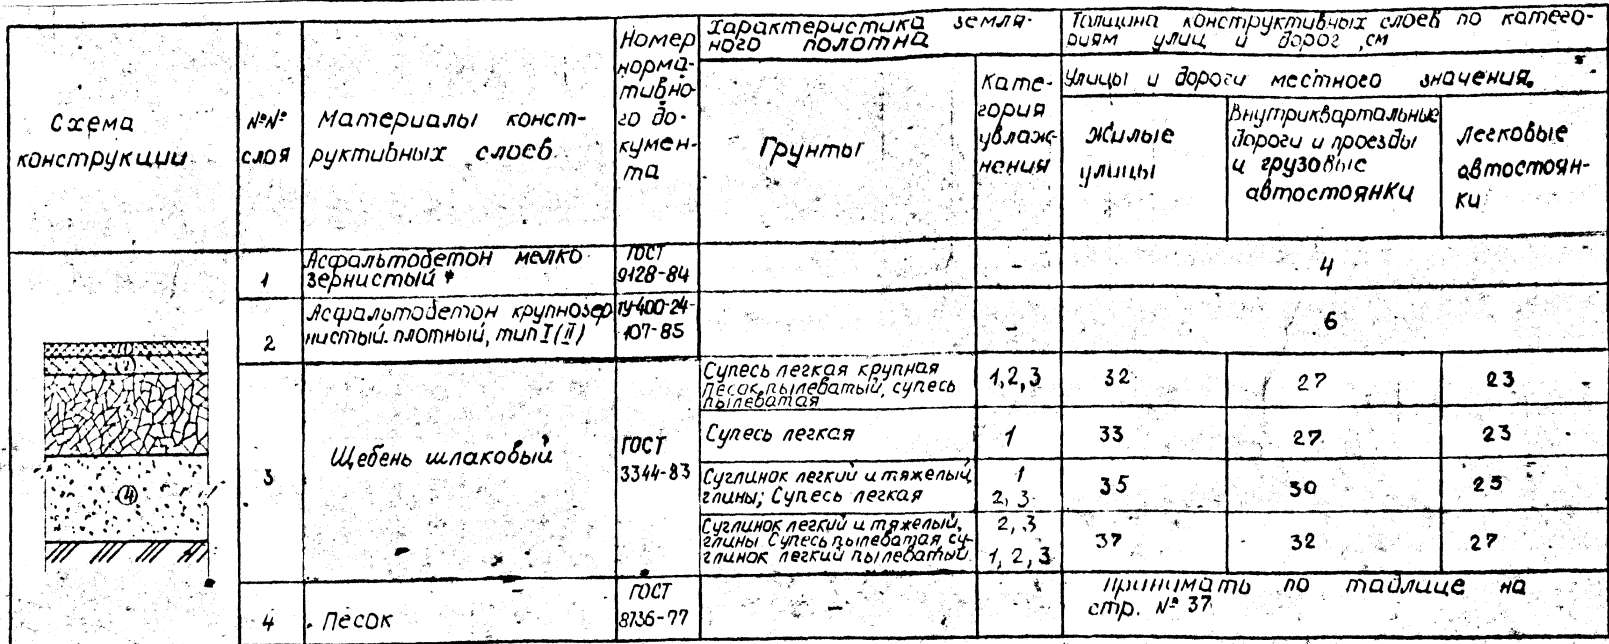 Схема
конструкции
№№
слоя
Материалы конст-
руктивных слоев
Номер
норма-
тивно-
го до-
кумен-
та
Характеристика земля-
ного полотна
Грунты
Кате-
гория
увлаж-
нения
Толщина конструктивных слоев по катего-
риям улиц и дорог, см
Улицы и дороги местного значения
Жилые
улицы
Внутриквартальные
дороги и проезды
и грузовые
автостоянки
Легковые
автостоян-
ки
1
Асфальтобетон мелко
зернистый *
ГОСТ
9128-84
-
4
2
Асфальтобетон крупнозер
нистый плотный, тип I (II)
ТУ-400-24-
107-85
-
6
3
Щебень шлаковый
ГОСТ
3344-83
Супесь легкая крупная
песок пылеватый, супесь
пылеватая
1, 2, 3
32
27
23
Супесь легкая
1
33
27
23
Суглинок легкий и тяжелый,
глины; Супесь легкая
1
2, 3
35
30
25
Суглинок легкий и тяжелый,
глины Супесь пылеватая, су-
глинок легкий пылеватый
2, 3
1, 2, 3
37
32
27
4
Песок
ГОСТ
8736-77
-
-
Принимать по таблице на
стр. № 37
(1)
(2)
(4)